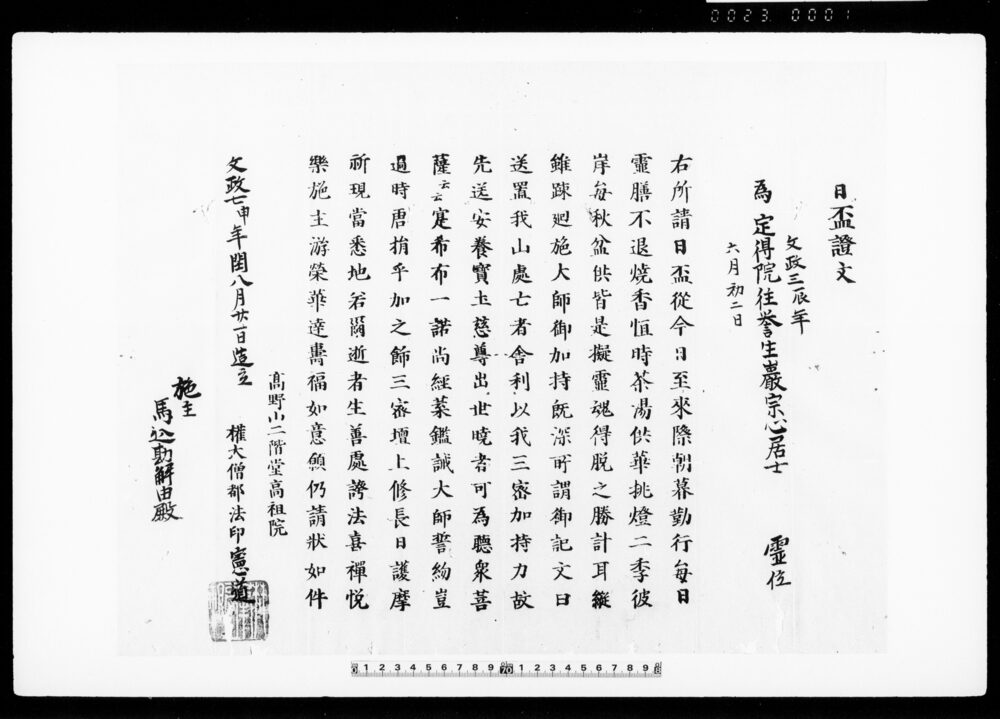 0023 0001
日盃證文
文政三辰年
六月初二日
為 定得院往誉生巖宗心居士 靈位
右所請日盃從今日至來際朝暮勤行每日
靈膳不退燒香恒時茶湯供華挑燈二季彼
岸每秋盆供皆是擬靈魂得脱之勝計耳縱
雖踈廻施大師御加持既深所謂御記文曰
送置我山處亡者舍利以我三密加持力故
先送安養寶土慈尊出世曉者可為聽衆菩
薩云云寔希布一諾尚經菓鑑誠大師誓約豈
過時唐捐乎加之飾三密壇上修長日護摩
祈現當悉地若爾逝者生善處誇法喜禪悦
樂施主游榮華達壽福如意願仍請状如件
高野山二階堂高祖院
文政七申年閏八月廿一日造立 權大僧都法印憲道
施主
馬込勘解由殿
0 1 2 3 4 5 6 7 8 9 70 1 2 3 4 5 6 7 8 9